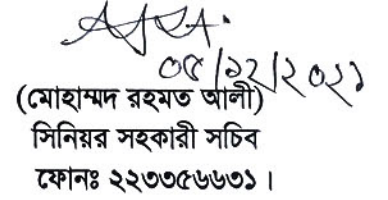 ০৫/১২/২০২১
(মোহাম্মদ রহমত আলী)
সিনিয়র সহকারী সচিব
ফোনঃ ২২৩৩৫৬৬৩১।